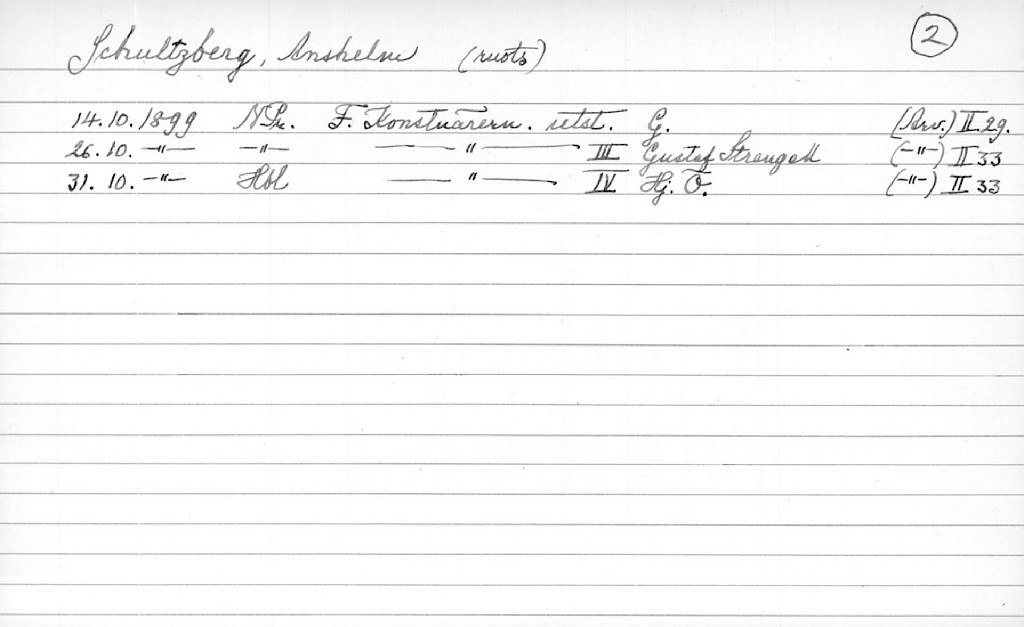 Schultzberg, Anshelm (ruots) 2
14.10.1899 N.Pr. F. Konstnärern. utst. G. (Arv.) II 29.
26.10. -"- -"- -"- III Gustaf Strengell (-"-) II 33
31.10. -"- Hbl -"- IV Hj. O. (-"-) II 33